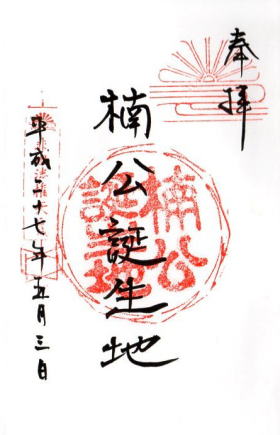 奉拝
楠公誕生地
平成二十七年五月三日
楠公
誕生地